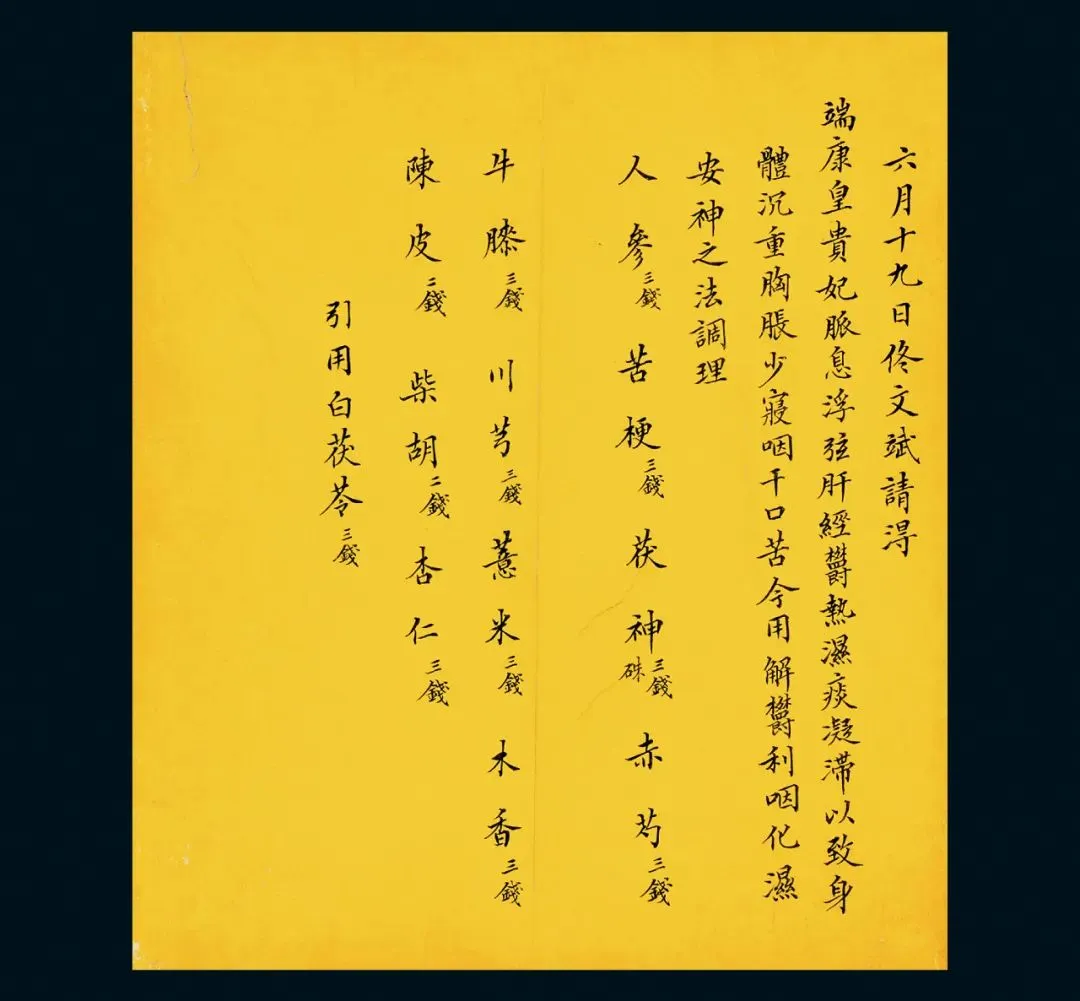 六月十九日佟文斌請淂
端康皇貴妃脈息浮弦肝經欝熱濕痰凝滯以致身
體沉重胸脹少寢咽干口苦今用解欝利咽化濕
安神之法調理
人參三錢 苦梗三錢 茯神三錢硃 赤芍三錢
牛膝三錢 川芎三錢 薏米三錢 木香三錢
陳皮二錢 柴胡二錢 杏仁三錢
引用白茯苓三錢